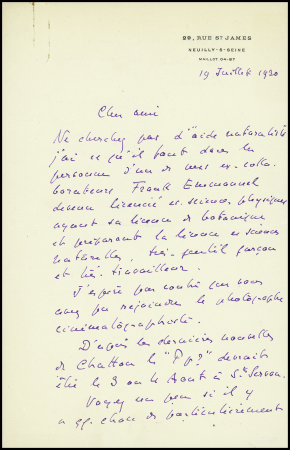 29, RUE ST JAMES
NEUILLY-S-SEINE
MAILLOT 04-87
19 Juillet 1930
Cher ami
Ne cherchez pas d'aide naturaliste
j'ai ce qu'il faut dans la
personne d'un de mes ex-colla-
borateurs Frank Emmanuel
devenu licencié es sciences physiques
ayant sa licence de botanique
et préparant la licence es sciences
naturelles, très gentil garçon
et très travailleur.
J'espère par contre que vous
avez pu rejoindre le photographe
cinématographiste.
D'après les dernières nouvelles
de Chatton le "Pp?" devrait
être le 3 ou le 4 août à St Servan.
Voyez un peu s'il y
a qq. chose de particulièrement